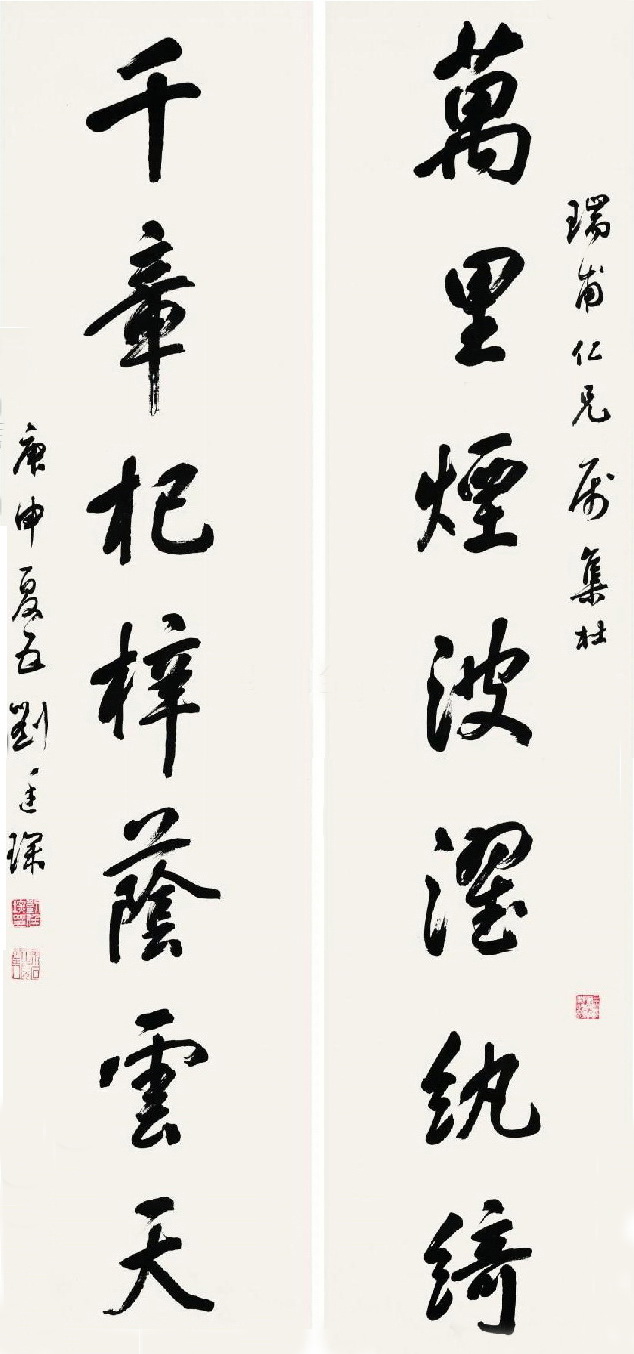 瑞甫仁兄属集杜
萬里煙波濯紈綺
千章杞梓蔭雲天
庚申夏五劉廷琛